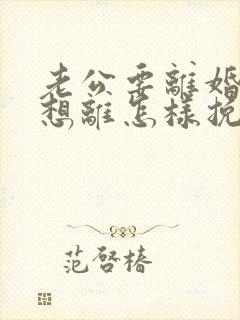 老公要離婚
想離怎樣挽
范啓椿